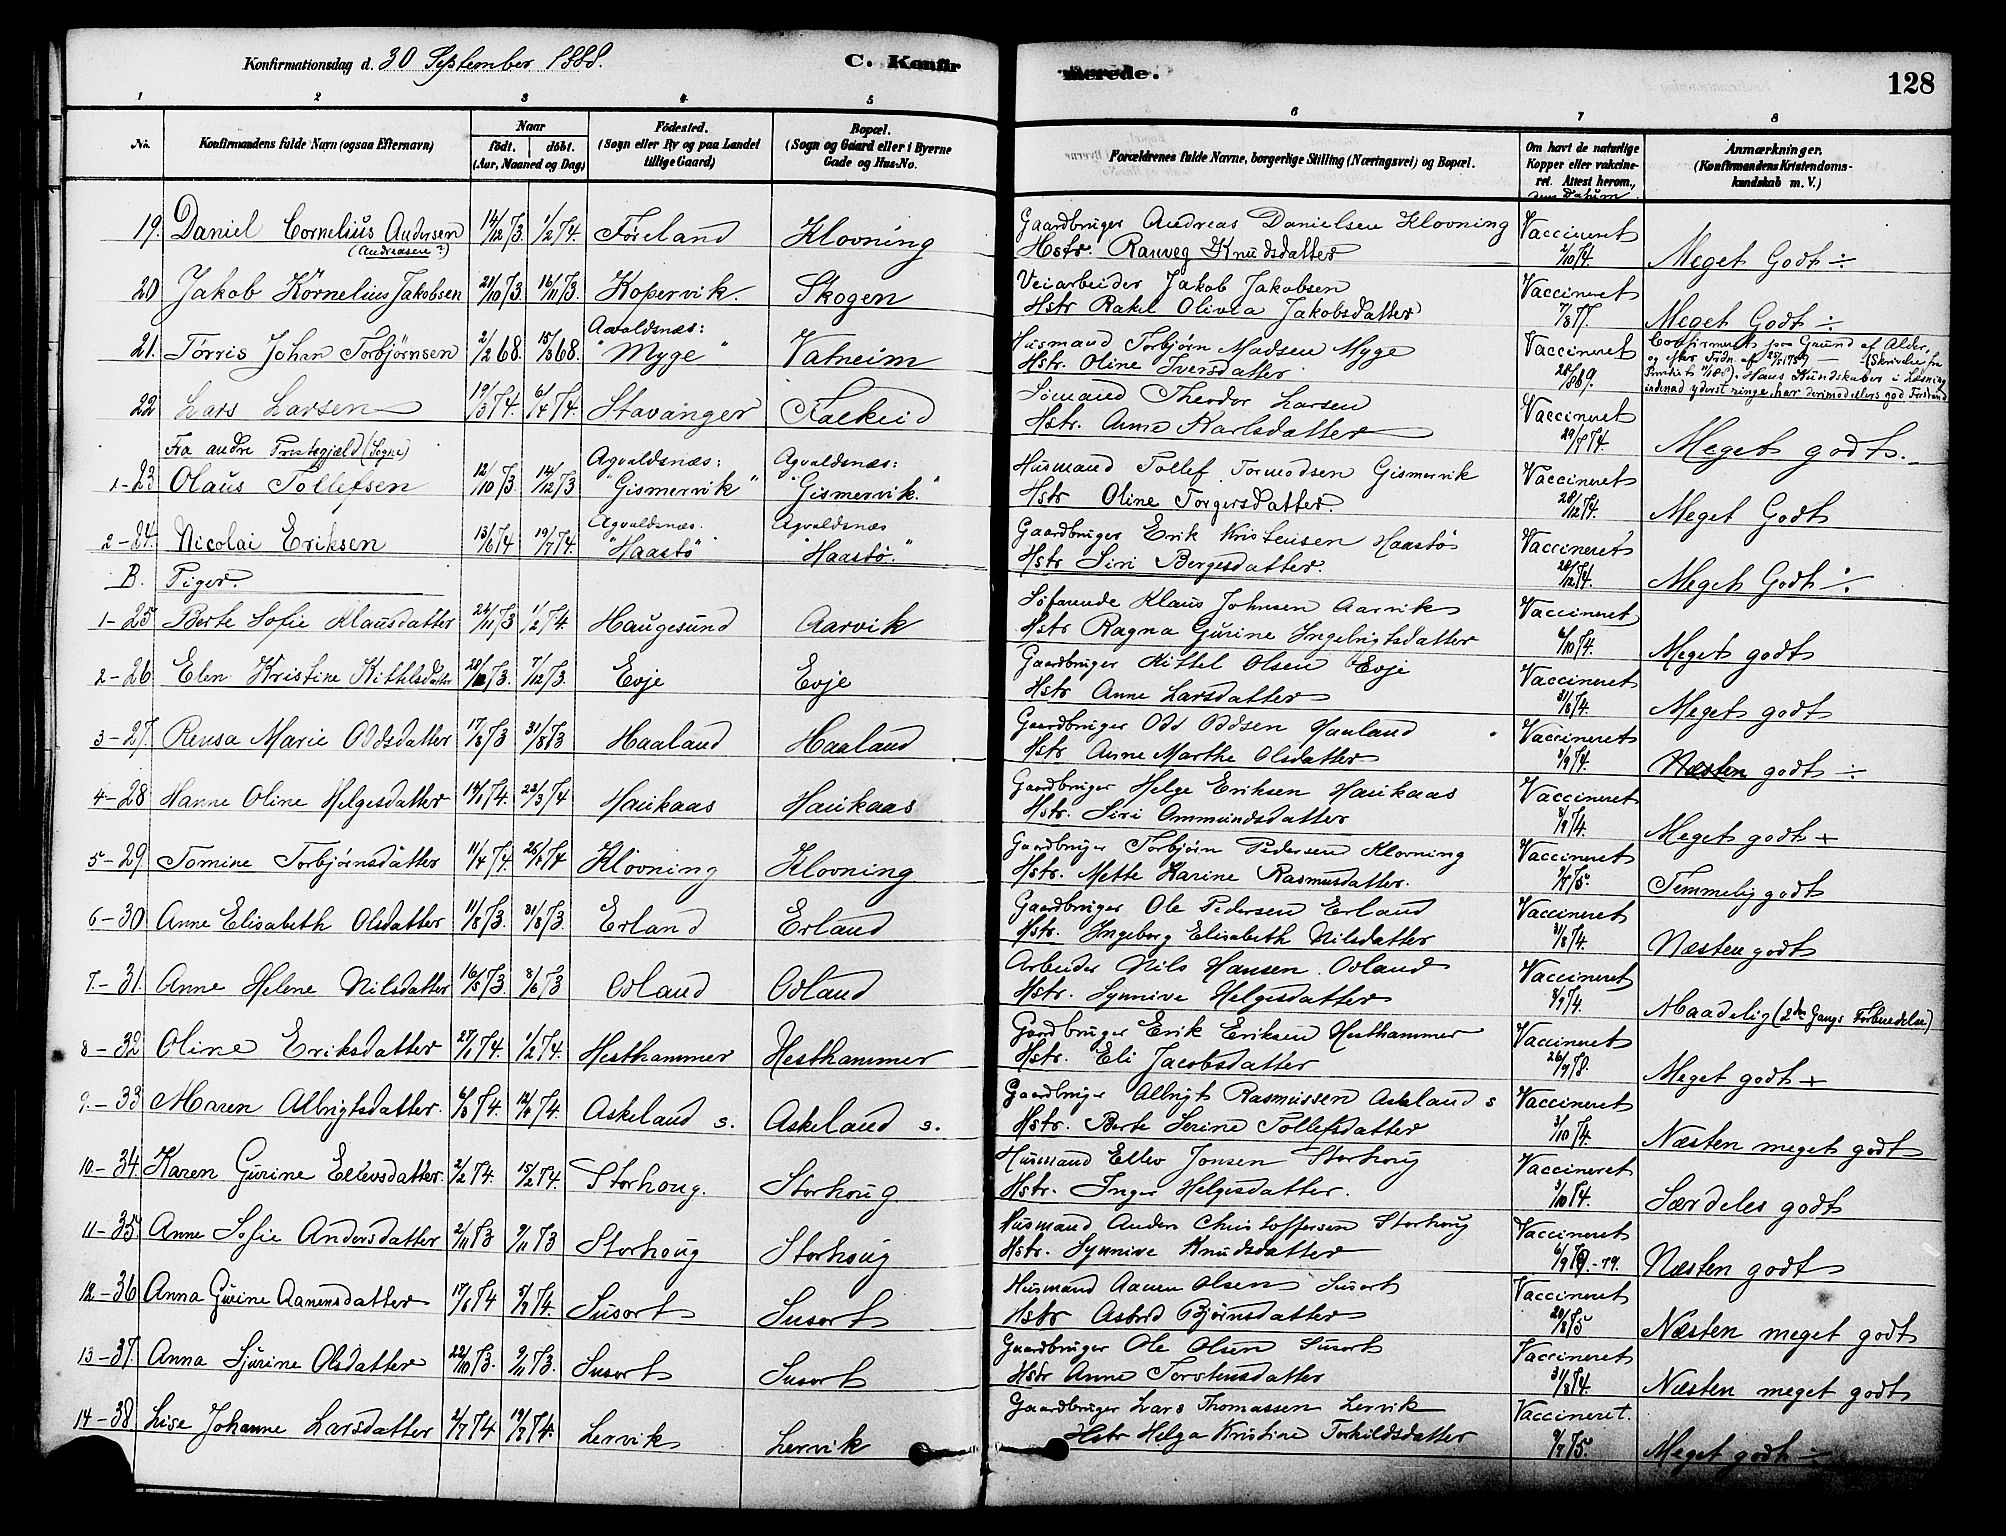 Konfirmationsdag d. 30 September 1888.
C. Konfirmerede.
128
1 2 3 4 5 6 7 8
No. Konfirmandens fulde Navn (ogsaa Efternavn) Naar født. døbt. (Aar, Maaned og Dag) Fødested. (Sogn eller By og paa Landet tillige Gaard) Bopæl. (Sogn og Gaard eller i Byerne Gade og Hus-No. Forældrenes fulde Navne, borgerlige Stilling (Næringsvei) og Bopæl. Om havt de naturlige Kopper eller vakcineret. Attest herom, Datum. Anmærkninger. (Konfirmandens Kristendomskundskab m. V.)
19. Daniel Cornelius Andersen 14/12 73. 1/2 74. Føreland Klovning Gaardbruger Andreas Danielsen Klovning Vaccineret
(Andreasen?) Hstr. Ranveg Knudsdatter 2/10 74. Meget Godt ÷
20 Jakob Kornelius Jakobsen 21/10 73. 16/11 73. Kopervik. Skogen Veiarbeider Jakob Jakobsen Vaccineret
Hstr Rakel Olivia Jakobsdatter 7/8 77. Meget Godt ÷
21. Tørris Johan Torbjørnsen 2/2 68. 15/3 68. Agvaldsnæs: "Myge" Vatneim Husmand Torbjørn Madsen Myge Vaccineret Confirmeret paa Grund af Alder,
Hstr. Oline Iversdatter 28/8 69. Hans Kundskaber i Læsning
22 Lars Larsen 19/3 74. 6/4 74. Stavanger Falkeid Sømand Theodor Larsen Vaccineret
Hstr. Anne Karlsdatter 29/7 74. Meget godt.
Fra andre Prestegjæld (Sogne)
1-23 Olaus Tollefsen 12/10 73. 14/12 73 Agvaldsnæs: "Gismervik" Agvaldsnæs: "Gismervik." Husmand Tollef Tormodsen Gismervik Vaccineret
Hstr Oline Torgersdatter 28/12 74. Meget Godt
2-24. Nicolai Eriksen 13/6 74 19/7 74. Agvaldsnæs. "Haastø" Agvaldsnæs "Haastø." Gaardbruger Erik Kristensen Haastø Vaccineret
Hstr Siri Bergesdatter. 28/12 74. Meget Godt ÷
B. Piger.
1-25 Berte Sofie Klausdatter 26/11 73 1/2 74. Haugesund Aarvik Søfarende Klaus Johnsen Aarvik Vaccineret
Hstr Ragna Gurine Ingebrigtsdatter 6/10 74. Meget godt
2-26 Elen Kristine Kittelsdatter 73. 7/12 73. Evje Evje Gaardbruger Kittel Olsen Evje Vaccineret
Hstr Anne Larsdatter 31/8 74. Meget godt
3-27. Rensa Marie Oddsdatter 17/8 73 31/8 73 Haaland Haaland Gaardbruger Odd Oddsen Haaland Vaccineret
Hstr. Anne Marthe Olsdatter 3/9 74. Næsten godt ÷
4-28 Hanne Oline Helgesdatter 14/1 74. 22/3 74 Haukaas Haukaas Gaardbruger Helge Eriksen Haukaas Vaccineret
Hstr. Siri Ommundsdatter 8/9 74. Meget godt +
5-29 Tomine Torbjørnsdatter 11/4 74. 26/4 74 Klovning Klovning Gaardbruger Torbjørn Pedersen Klovning Vaccineret
Hstr. Mette Karine Rasmusdatter. 75. Temmelig godt
6-30 Anne Elisabeth Olsdatter 11/8 73. 31/8 73. Erland Erland Gaardbruger Ole Pedersen Erland Vaccineret
Hstr. Ingeborg Elisabeth Nilsdatter 31/8 74. Næsten godt
7-31. Anne Helene Nilsdatter 16/5 73. 8/6 73 Odland Odland Arbeider Nils Hansen Odland Vaccineret
Hstr. Synnive Helgesdatter 8/9 74. Maadelig (2den Gangs Forberedelse)
8-32 Oline Eriksdatter 27/1 74. 1/2 74. Hesthammer Hesthammer Gaardbruger Erik Eriksen Hesthammer Vaccineret
Hstr. Eli Jacobsdatter 26/7 78. Meget godt +
9.-33 Maren Albrigtsdatter. 74. 74. Askeland s. Askeland s. Gaardbruger Albrigt Rasmussen Askeland s Vaccineret
Hstr. Berte Serine Tollefsdatter 3/10 74. Næsten meget godt
10-34. Karen Gurine Ellevsdatter. 2/2 74. 15/2 74. Storhoug. Storhoug Husmand Ellev Jonsen Storhoug Vaccineret
Hstr. Inger Helgesdatter. 3/10 74. Særdeles godt
11-35 Anne Sofie Andersdatter 2/11 73 9/11 73 Storhoug Storhoug Husmand Anders Christoffersen Storhoug Vaccineret
Hstr. Synnive Knudsdatter 6/9 79. -79. Næsten godt
12-36 Anna Gurine Aanensdatter 17/6 74 5/7 74. Susort Susort Husmand Aanen Olsen Susort Vaccineret
Hstr Astrid Bjørnsdatter 20/8 75 Næsten meget godt
13-37. Anna Sjurine Olsdatter 22/10 73. 9/11 73. Susort Susort Gaardbruger Ole Olsen Susort Vaccineret
Hstr Anne Torstensdatter 31/8 74. Næsten meget godt
14-38. Lise Johanne Larsdatter 2/7 74 19/7 74. Lervik Lervik Gaardbruger Lars Thomassen Lervik Vaccineret.
Hstr Helga Kristine Torkildsdatter 9/7 75. Meget godt ÷